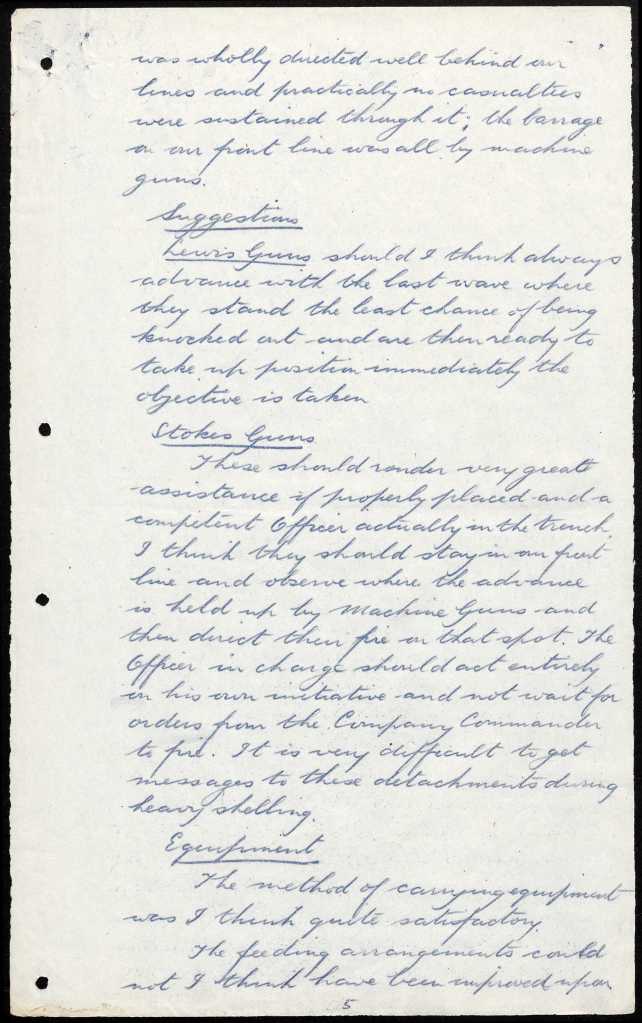 was wholly directed well behind our
lines and practically no casualties
were sustained through it; the barrage
on our front line was all by machine
guns.
Suggestions
Lewis Guns should I think always
advance with the last wave where
they stand the least chance of being
knocked out and are then ready to
take up position immediately the
objective is taken
Stokes Guns
These should render very great
assistance if properly placed and a
competent Officer actually in the trench.
I think they should stay in our front
line and observe where the advance
is held up by Machine Guns and
then direct their fire on that spot. The
Officer in charge should act entirely
on his own initiative and not wait for
orders from the Company Commander
to fire. It is very difficult to get
messages to these detachments during
heavy shelling.
Equipment
The method of carrying equipment
was I think quite satisfactory.
The feeding arrangements could
not I think have been improved upon
5